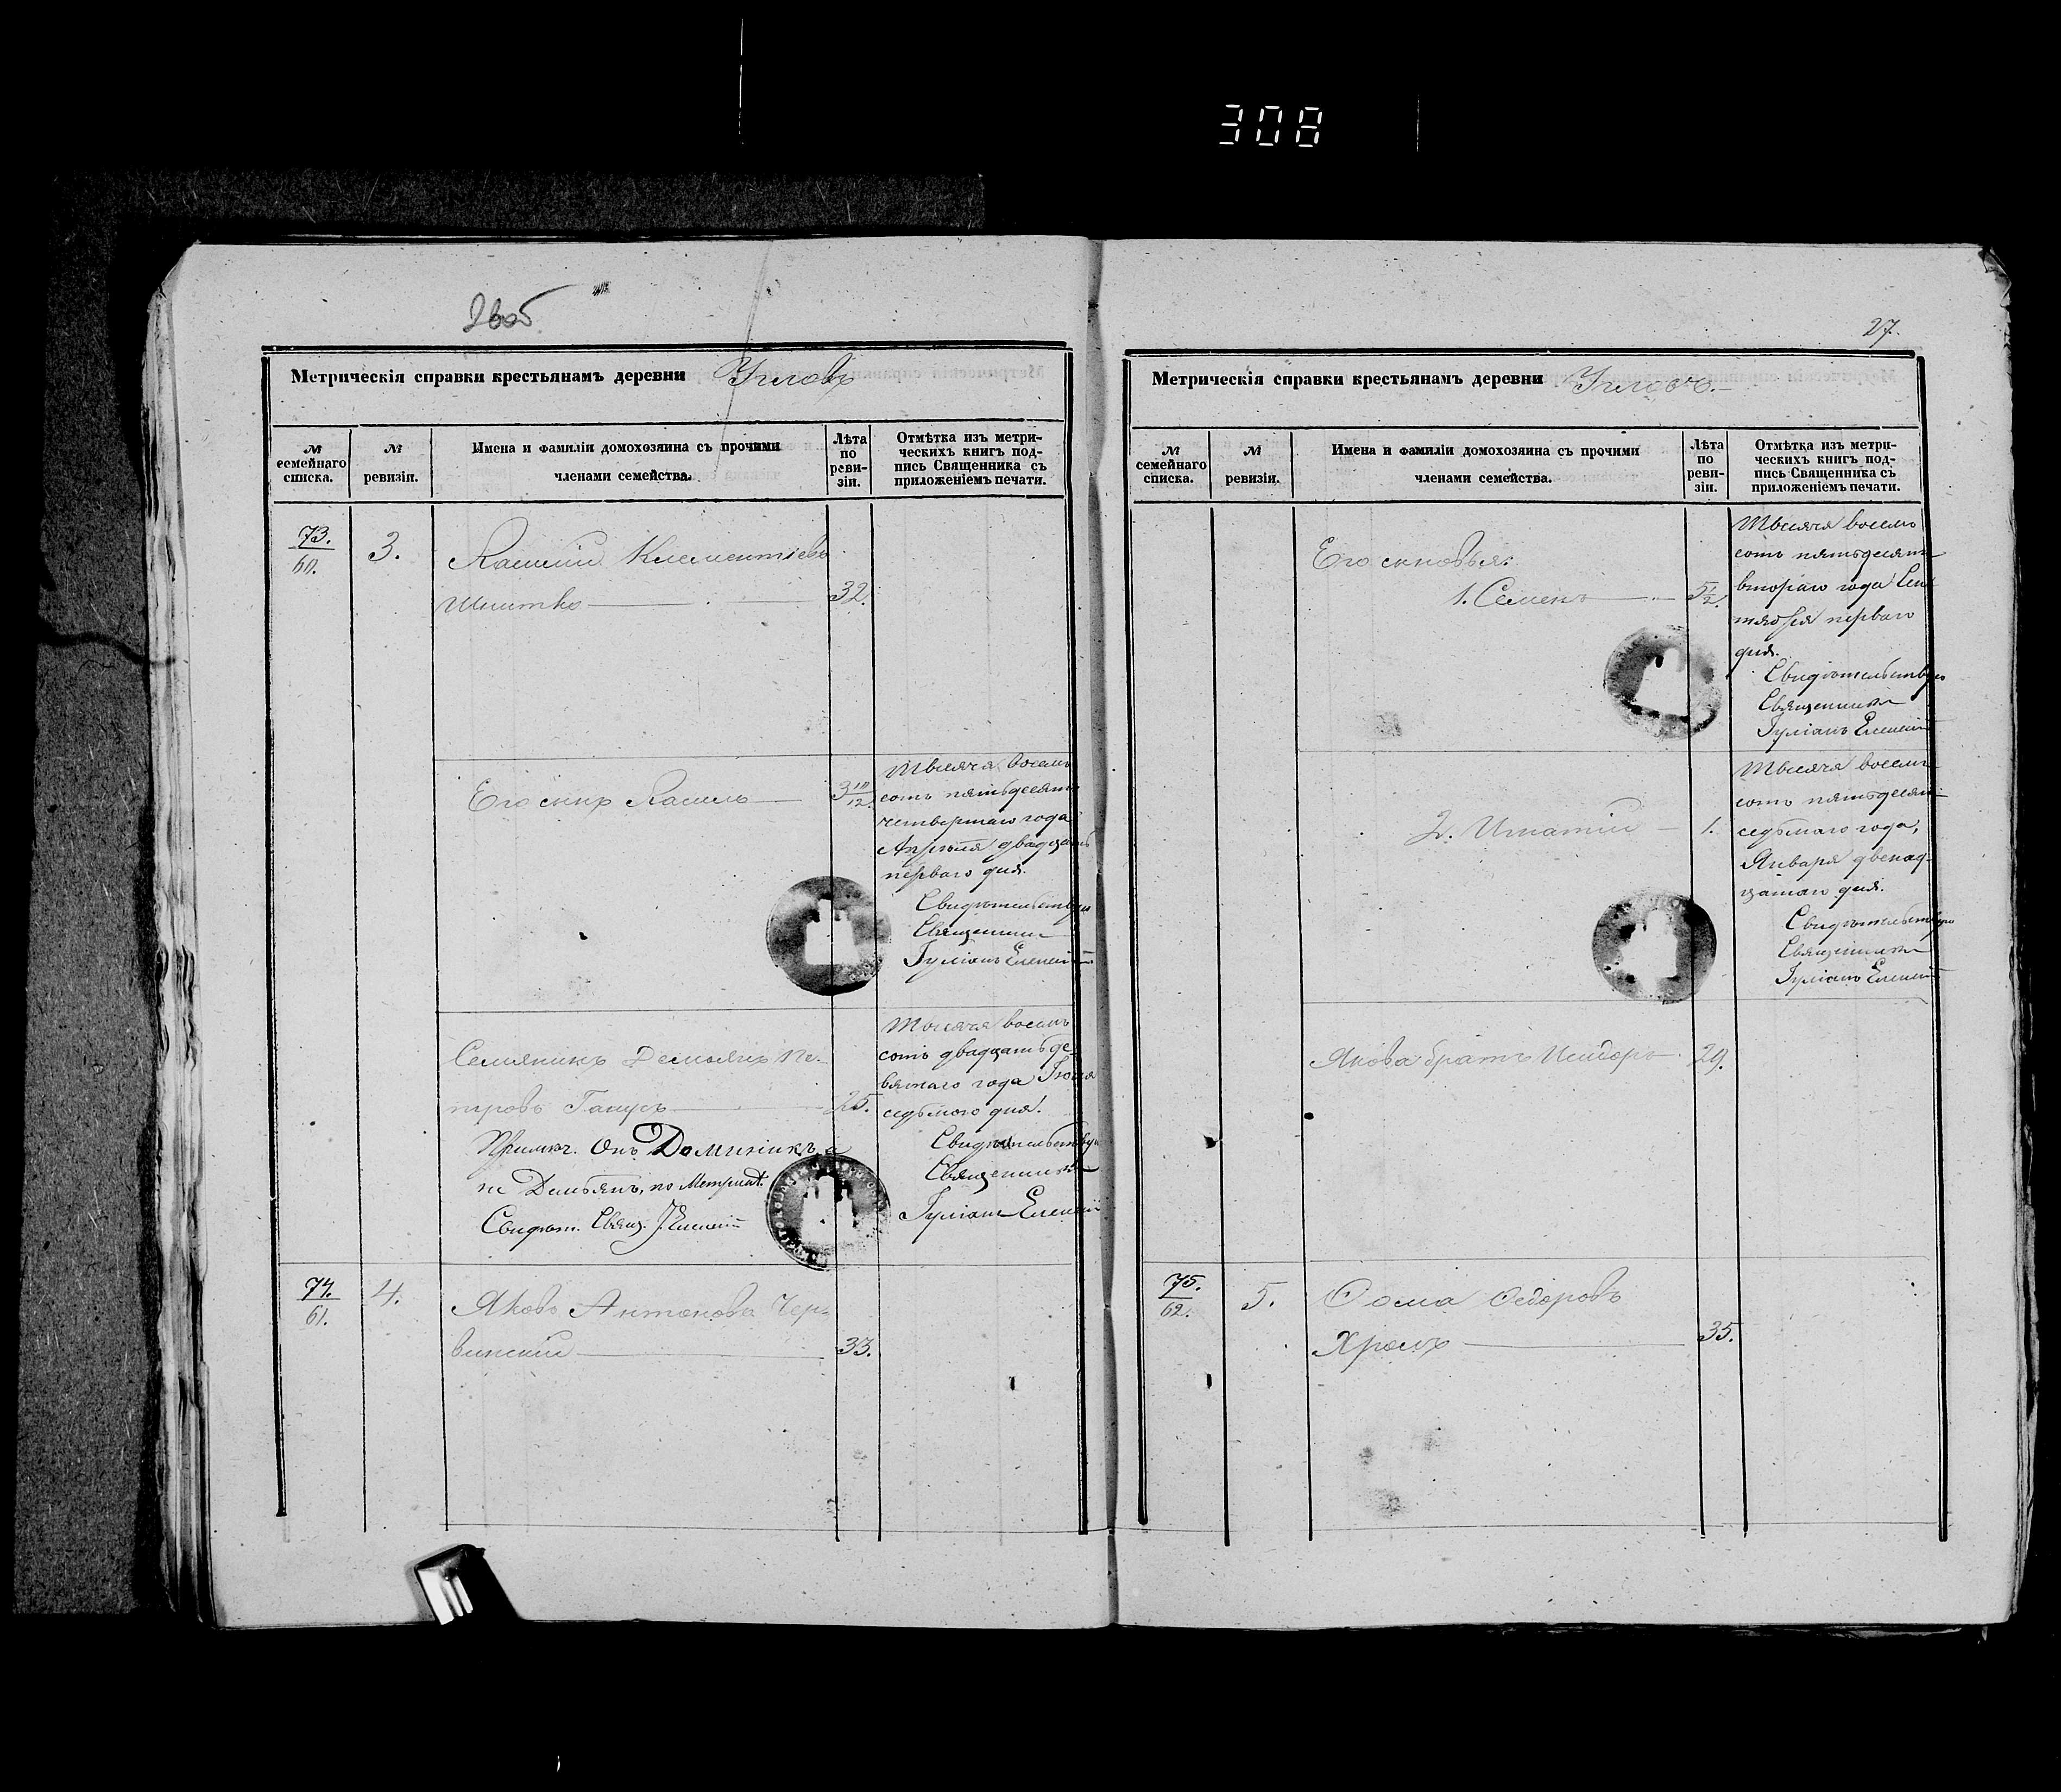 308
27.
Метрическія справки крестьянамъ деревни
№ семейнаго списка.
№ ревизіи.
Имена и фамиліи домохозяина съ прочими членами семейства.
Лѣта по ревизіи.
Отмѣтка изъ метрическихъ книгъ подпись Священника съ приложеніемъ печати.
73.
60.
3.
Клементіевъ
32.
Его сынъ
3 10/12.
Тысяча восемь
сотъ пятьдесятъ
четвертаго года
Апрѣля двадцать
перваго дня.
Свидѣтельствую
Священникъ
Іуліанъ
Семьянинъ Демьянъ Пе-
тровъ
25.
Тысяча восемь
сотъ двадцать де
вятаго года
седьмого дня.
Примѣч. Онъ Доминикъ а
не Демьянъ, по Метрикѣ.
Свидѣт. Свящ.
Свидѣтельствую
Священникъ
Іуліанъ
74.
61.
4.
Яковъ Антоновъ Чер-
винскій
33.
Метрическія справки крестьянамъ деревни
№ семейнаго списка.
№ ревизіи.
Имена и фамиліи домохозяина съ прочими членами семейства.
Лѣта по ревизіи.
Отмѣтка изъ метрическихъ книгъ подпись Священника съ приложеніемъ печати.
Его сыновья:
1. Семенъ
5 1/2.
Тысяча восемь
сотъ пятьдесятъ
втораго года Сен
тября перваго
дня.
Свидѣтельствую
Священникъ
Іуліанъ
2. Игнатій
1.
Тысяча восемь
сотъ пятьдесятъ
седьмаго года,
Января двенад-
цатаго дня.
Свидѣтельствую
Священникъ
Іуліанъ
Якова братъ Исидоръ
29.
75.
62.
5.
Ѳома Ѳедоровъ
35.